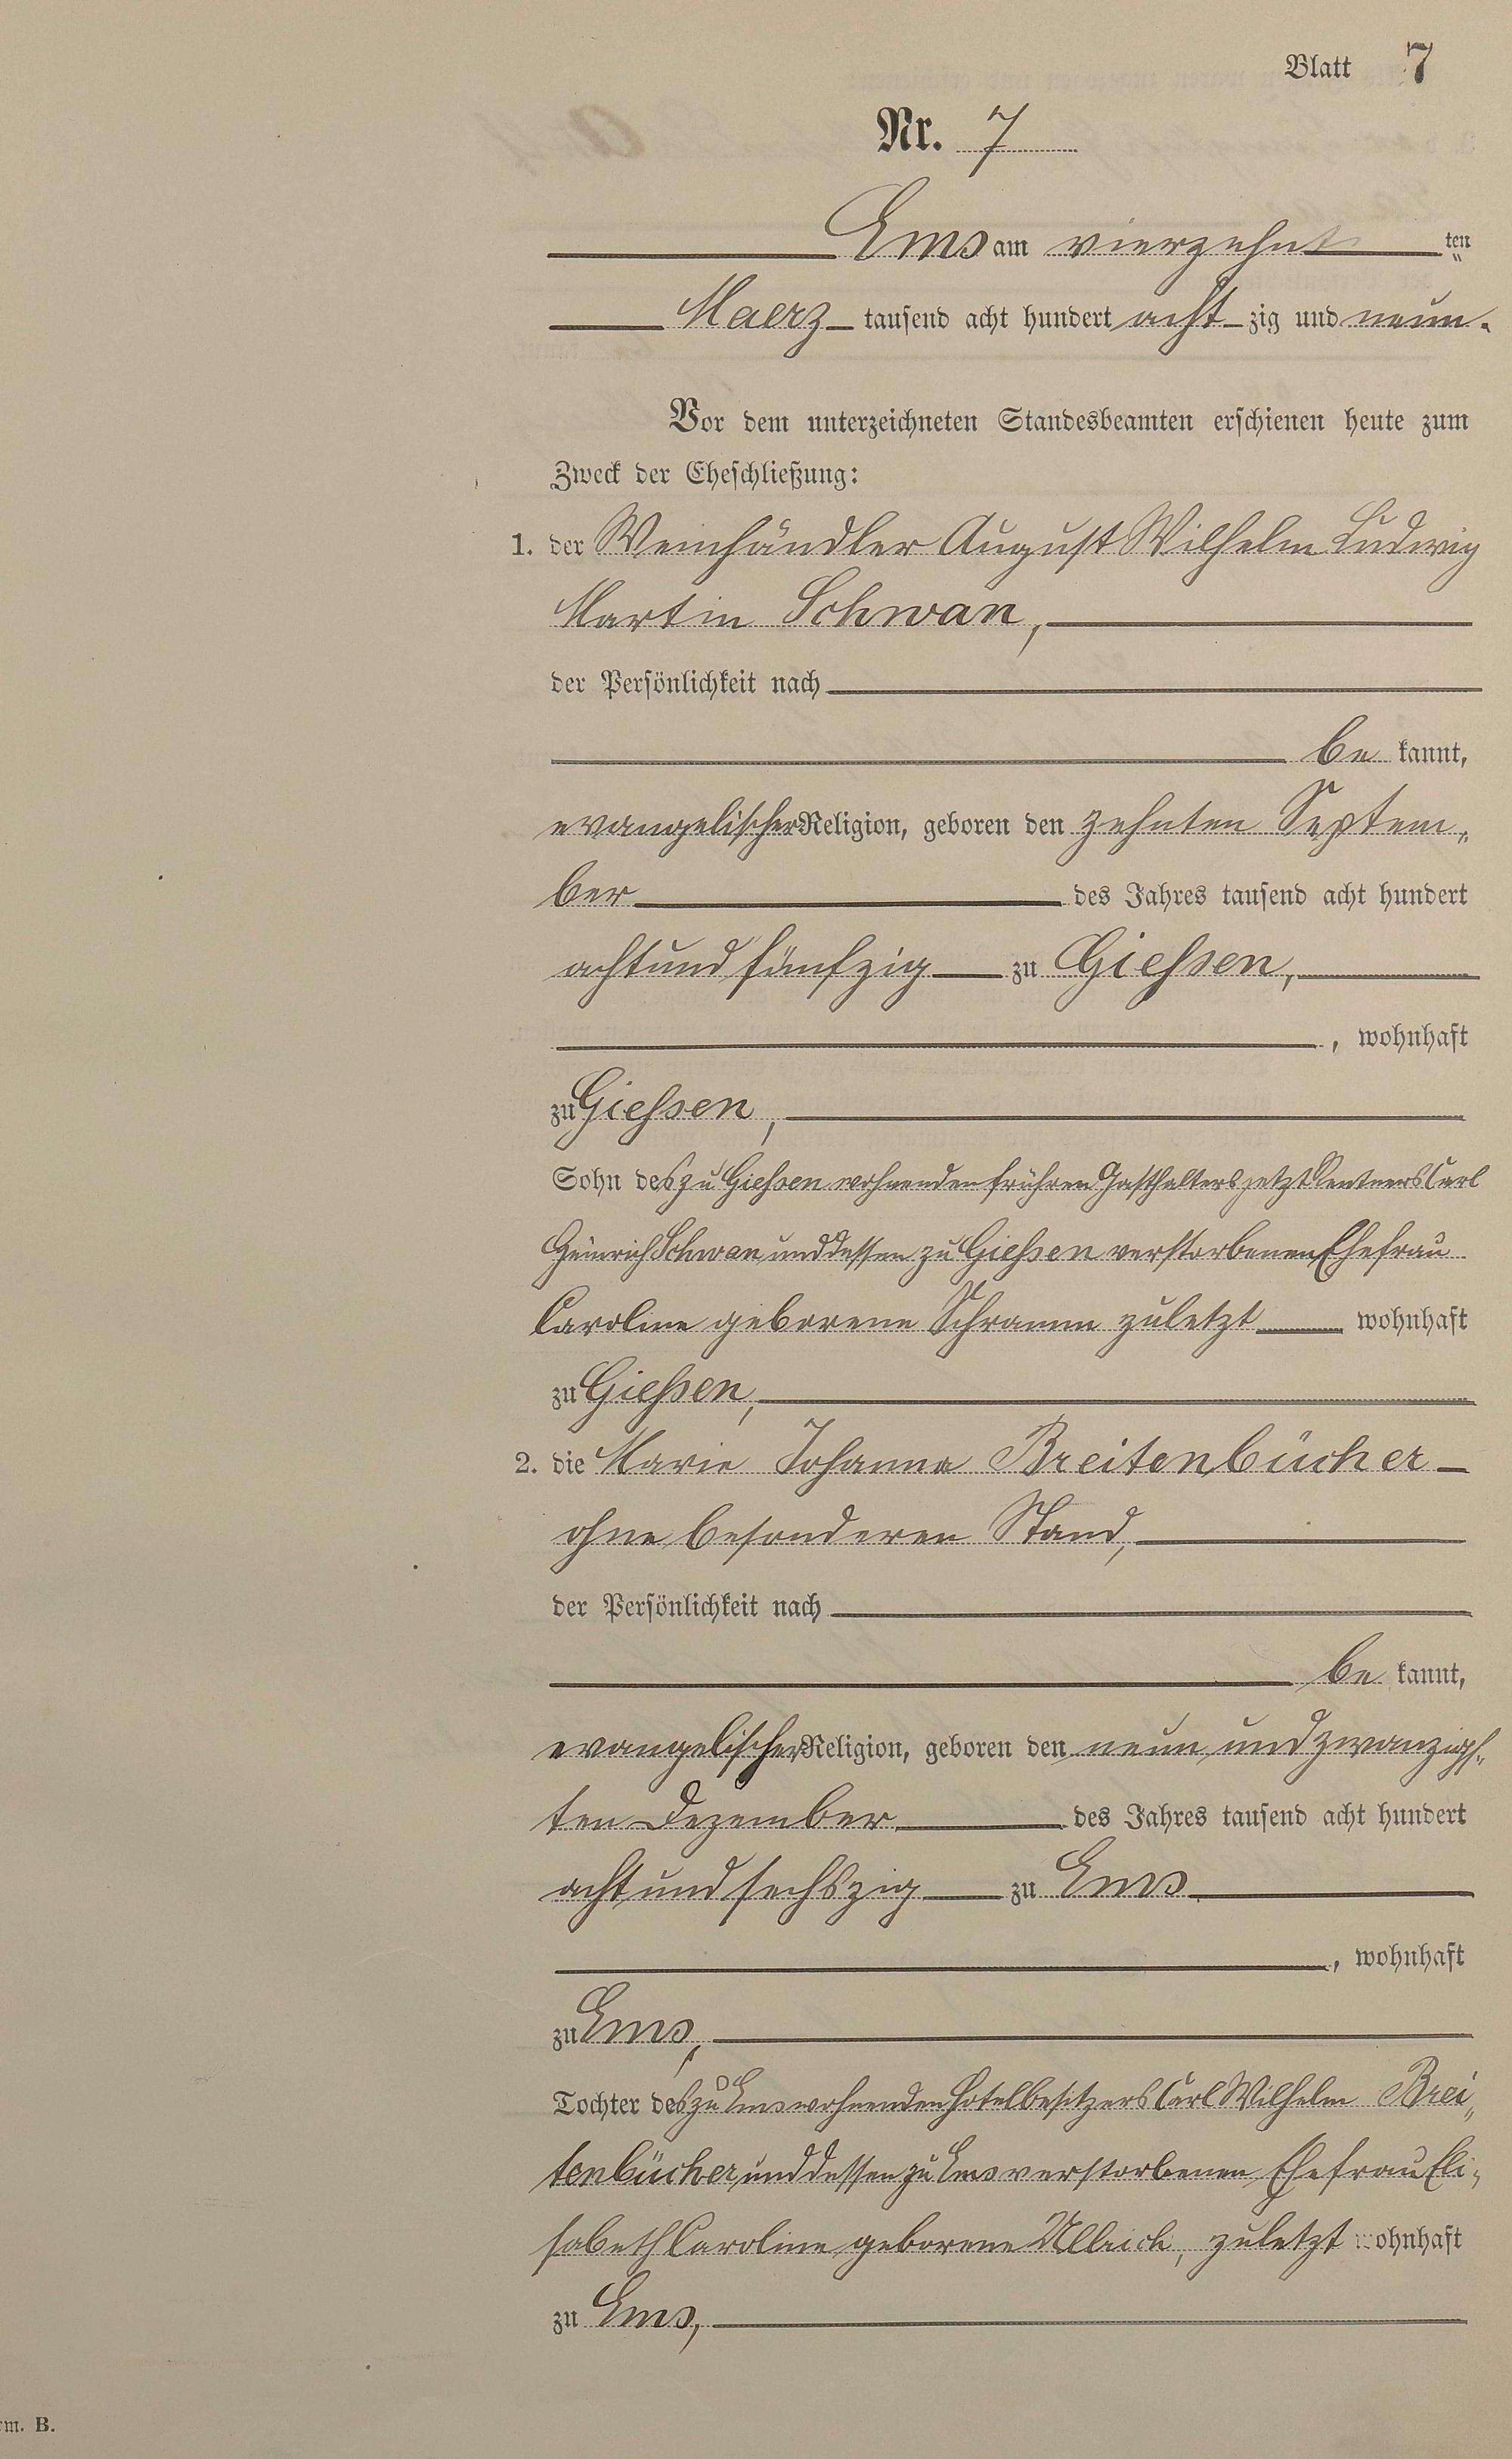 Blatt 7
Nr. 7
Ems am vierzehnt ten
Maerz tausend acht hundert acht zig und neun.
Vor dem unterzeichneten Standesbeamten erschienen heute zum
Zweck der Eheschließung:
1. der Weinhändler August Wilhelm Ludwig
Martin Schwan,
der Persönlichkeit nach
be kannt,
evangelischer Religion, geboren den zehnten Septem„
ber des Jahres tausend acht hundert
achtundfünfzig zu Giessen,
, wohnhaft
zu Giessen,
Sohn des zu Giessen wohnenden frühren Gasthalters jetzt Rentners Carl
Heinrich Schwan und dessen zu Giessen verstorbenen Ehefrau
Caroline geborene Schramm zuletzt wohnhaft
zu Giessen,
2. die Marie Johanna Breitenbücher
ohne besonderen Stand,
der Persönlichkeit nach
be kannt,
evangelischer Religion, geboren den neun und zwanzigs„
ten Dezember des Jahres tausend acht hundert
acht und sechszig zu Ems
, wohnhaft
zu Ems,
Tochter des zu Ems wohnenden Hotelbesitzers Carl Wilhelm Brei„
tenbücher und dessen zu Ems verstorbenen Ehefrau Eli„
sabeth Caroline geborene Ullrich, zuletzt wohnhaft
zu Ems,
rm. B.